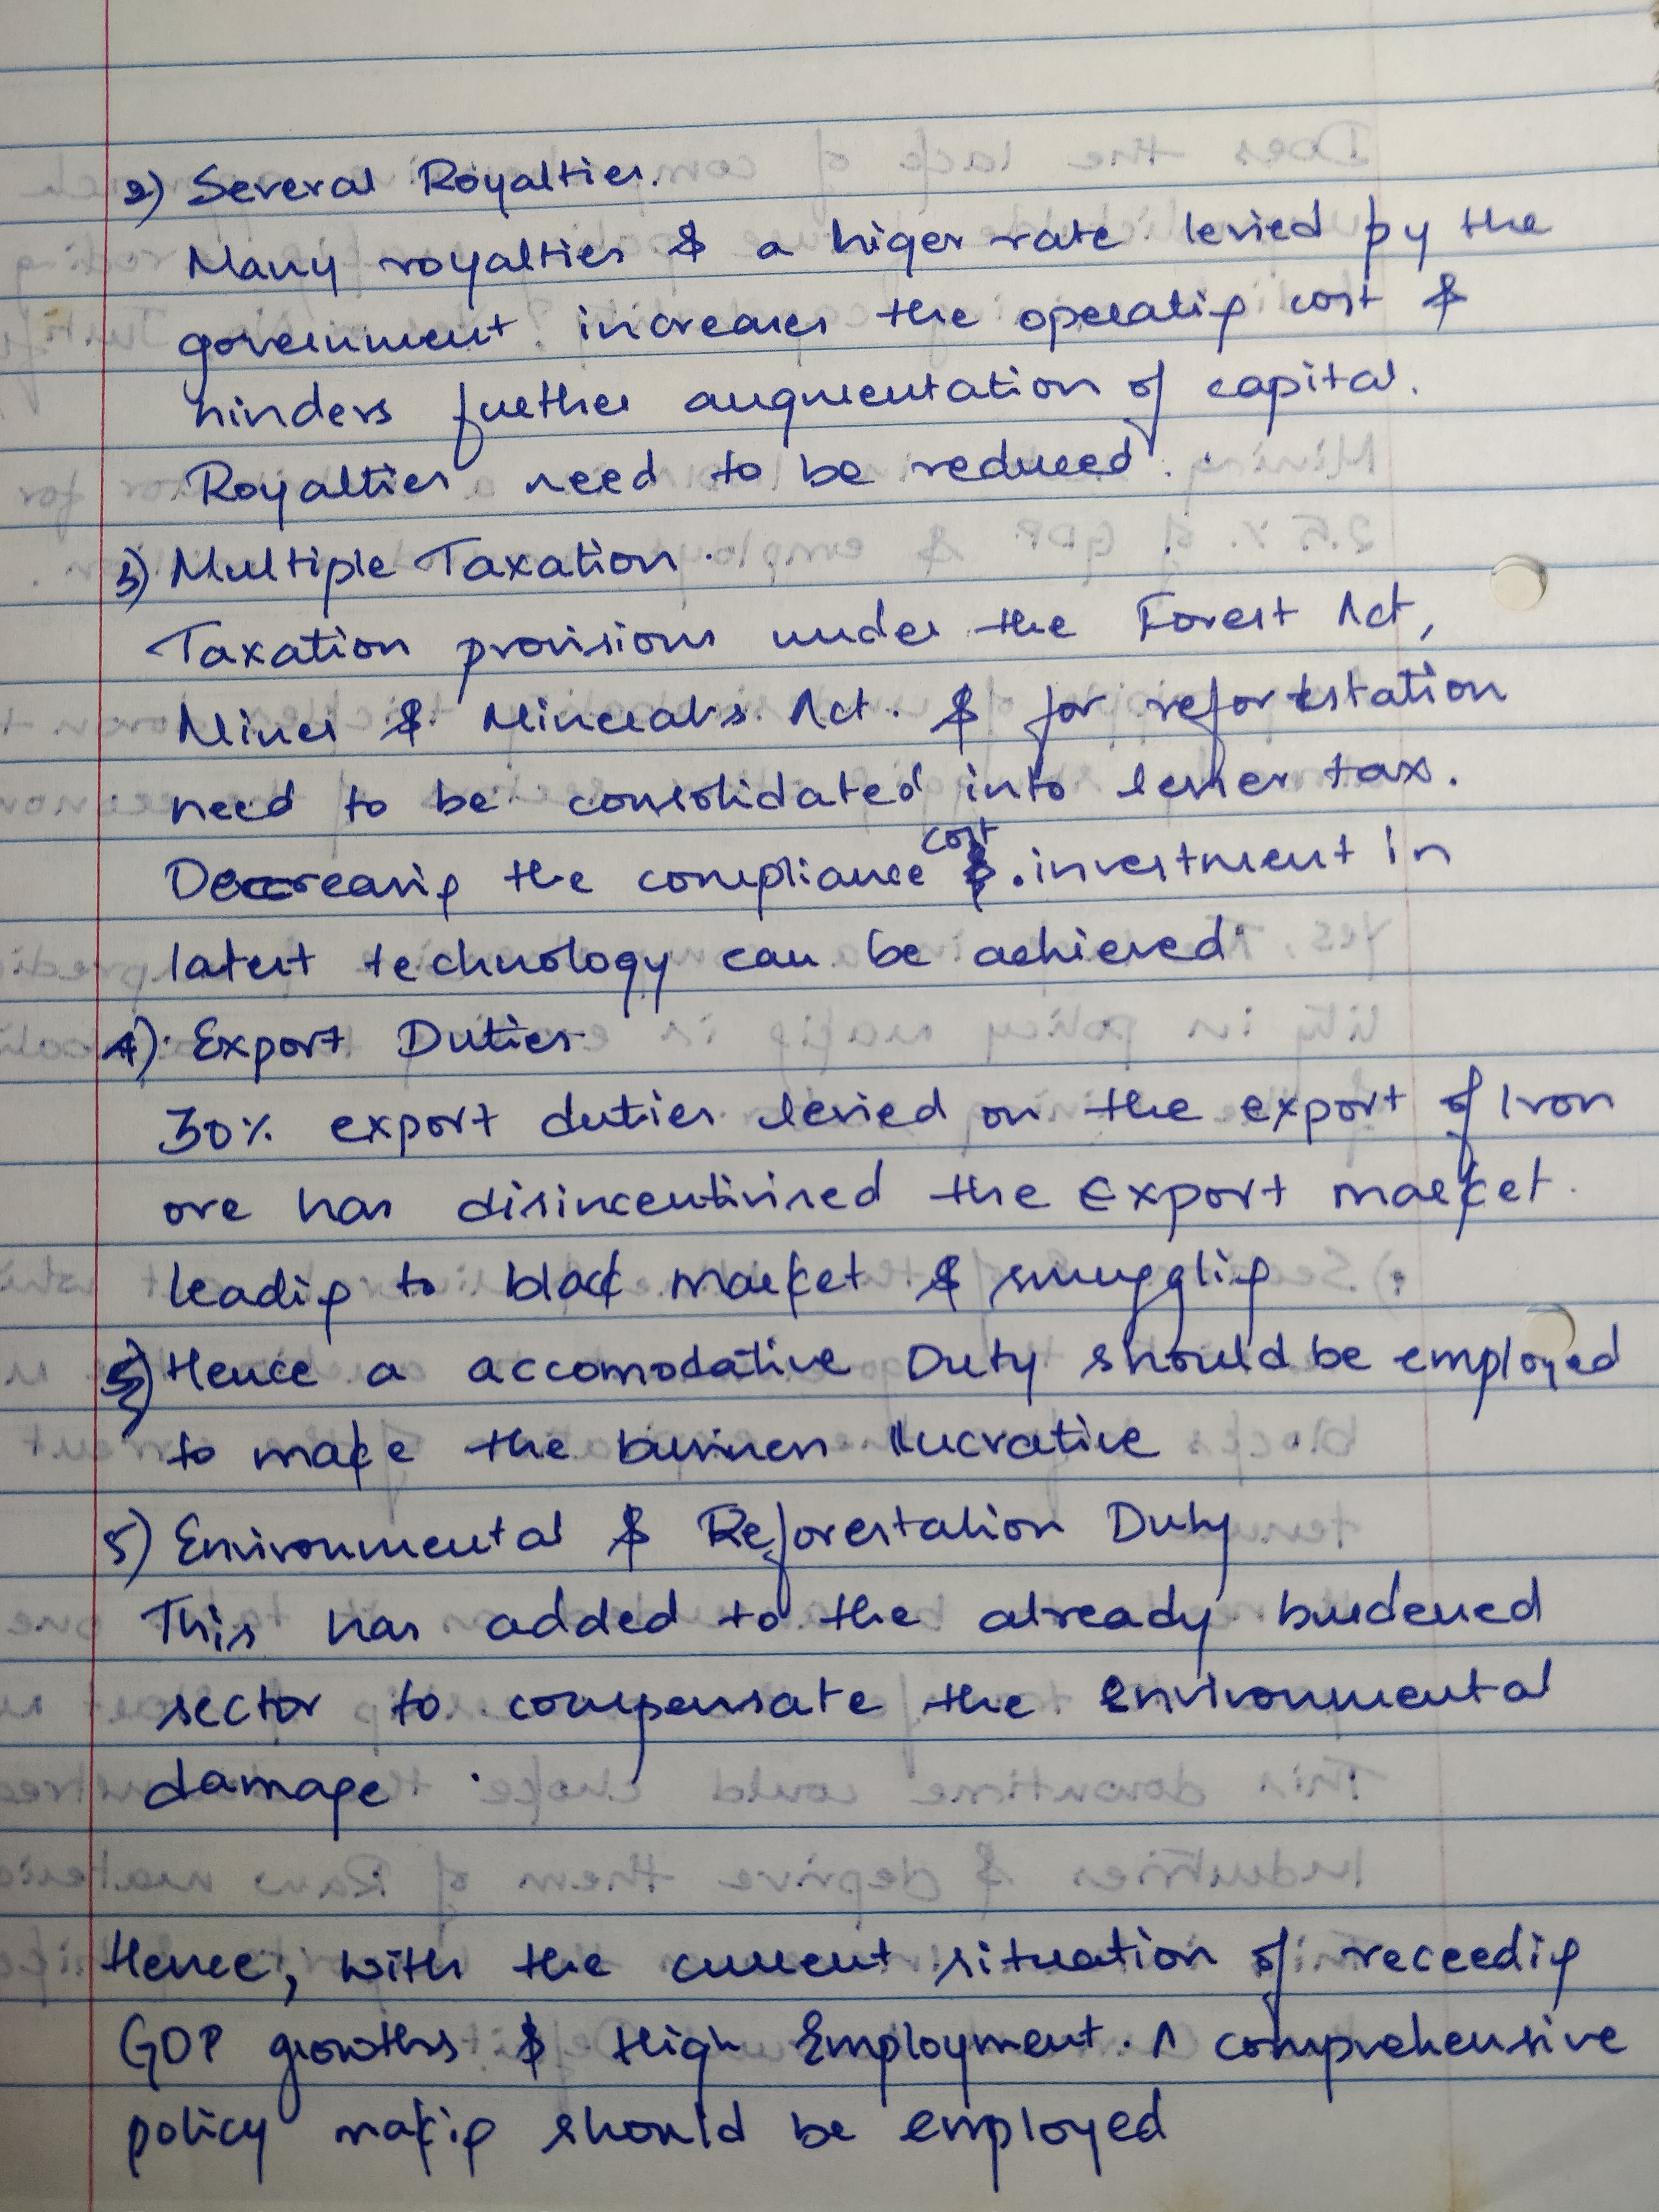 2) Several Royalties.
Many royalties & a higer rate levied by the
government increases the operating cost &
hinders further augmentation of capital.
Royalties need to be reduced.
3) Multiple Taxation.
Taxation provisions under the Forest Act,
Mines & Minerals Act. & for reforestation
need to be consolidated into lesser tax.
Decreasing the compliance cost &. investment in
latest technology can be achieved
4) Export Duties
30% export duties levied on the export of Iron
ore has disincentivised the export market.
leading to black market & smuggling
Hence a accomodative Duty should be employed
to make the business lucrative
5) Environmental & Reforestation Duty
This has added to the already burdened
sector to compensate the environmental
damage.
Hence, with the current situation of receeding
GDP growths & High Employment. A comprehensive
policy making should be employed